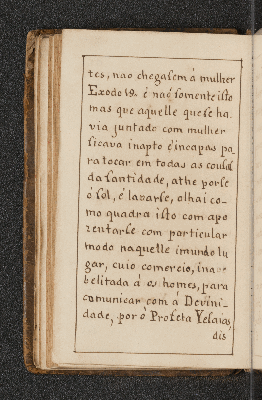 tes, nao chegasem á mulher
Exodo 19. é naõ somente isto
mas que aquelle que se ha
via juntado com mulher
ficava inapto é incapas pa
ra tocar em todas as cousas
da santidade, athe por se
ó sol, é lavarse, olhai co-
mo quadra isto com apo
zentarse com particular
modo naquelle imundo lu
gar, cuio comercio, ina
belitada á os homes, para
comunicar com á Devini-
dade, por ó Profeta Yesaias,
dis